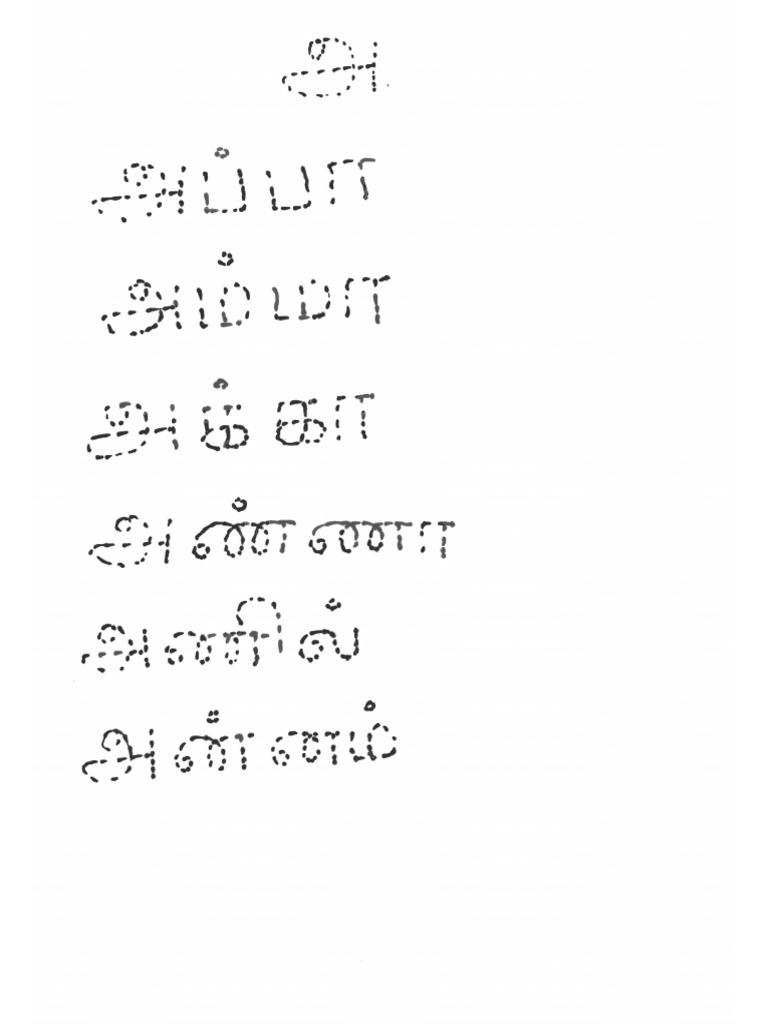 அ
அப்பா
அம்மா
அக்கா
அண்ணா
அணில்
அன்னம்